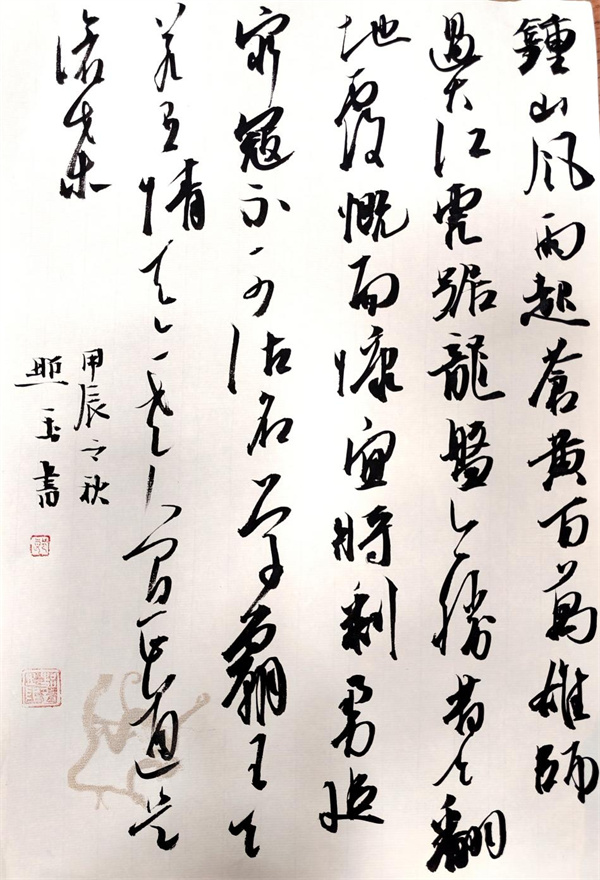 鍾山风雨起蒼黄百萬雄師
過大江虎踞龍盤今勝昔天翻
地覆慨而慷宜將剩勇追
窮寇不可沽名学霸王天
若有情天亦老人间正道是
滄桑
甲辰之秋
玉書